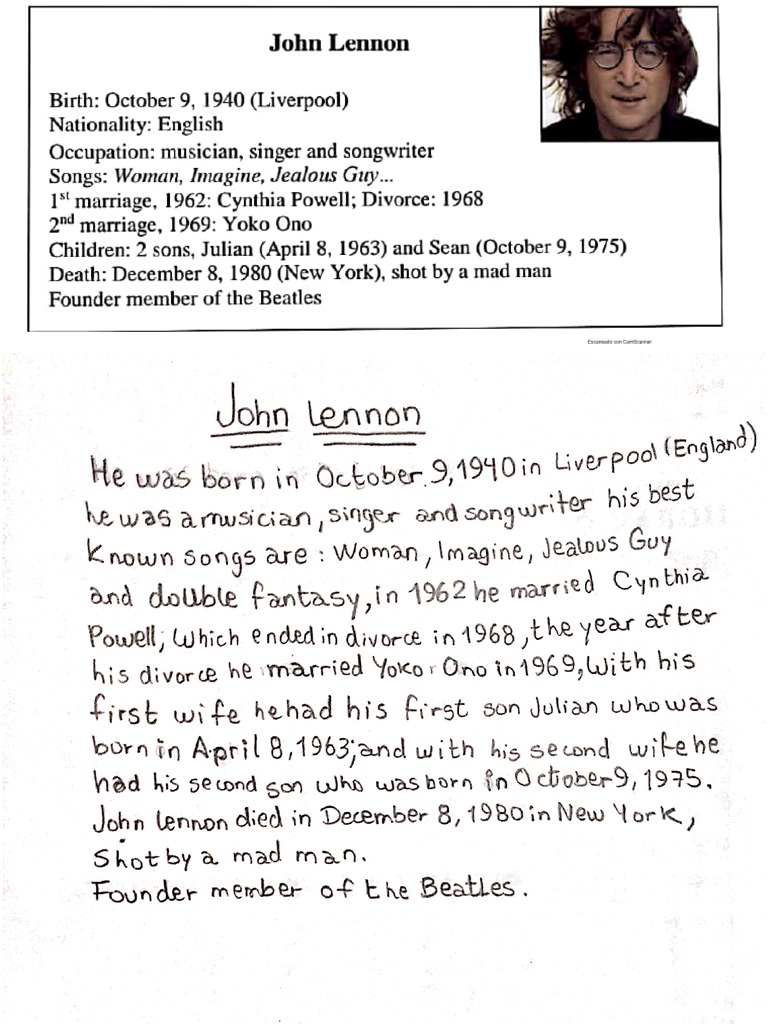 John Lennon
Birth: October 9, 1940 (Liverpool)
Nationality: English
Occupation: musician, singer and songwriter
Songs: Woman, Imagine, Jealous Guy...
1st marriage, 1962: Cynthia Powell; Divorce: 1968
2nd marriage, 1969: Yoko Ono
Children: 2 sons, Julian (April 8, 1963) and Sean (October 9, 1975)
Death: December 8, 1980 (New York), shot by a mad man
Founder member of the Beatles
Escaneado con CamScanner
John Lennon
He was born in October 9, 1940 in Liverpool (England)
he was a musician, singer and songwriter his best
Known songs are: Woman, Imagine, Jealous Guy
and double fantasy, in 1962 he married Cynthia
Powell; Which ended in divorce in 1968, the year after
his divorce he married Yoko Ono in 1969, With his
first wife he had his first son Julian who was
born in April 8, 1963; and with his second wife he
had his second son who was born in October 9, 1975.
John Lennon died in December 8, 1980 in New York,
Shot by a mad man.
Founder member of the Beatles.